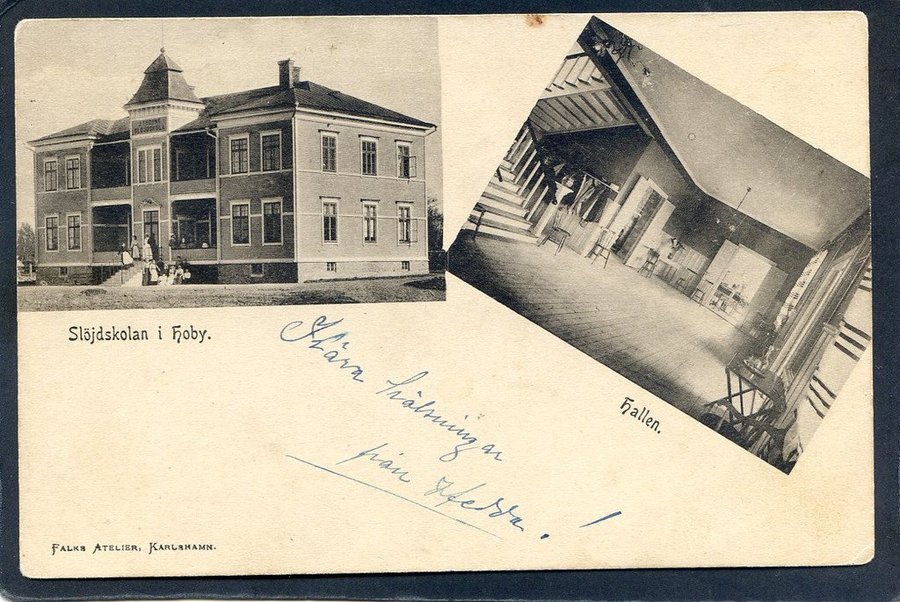 Slöjdskolan i Hoby.
Hallen.
Kära hälsningar
från Hedda.!
Falks Atelier, Karlshamn.